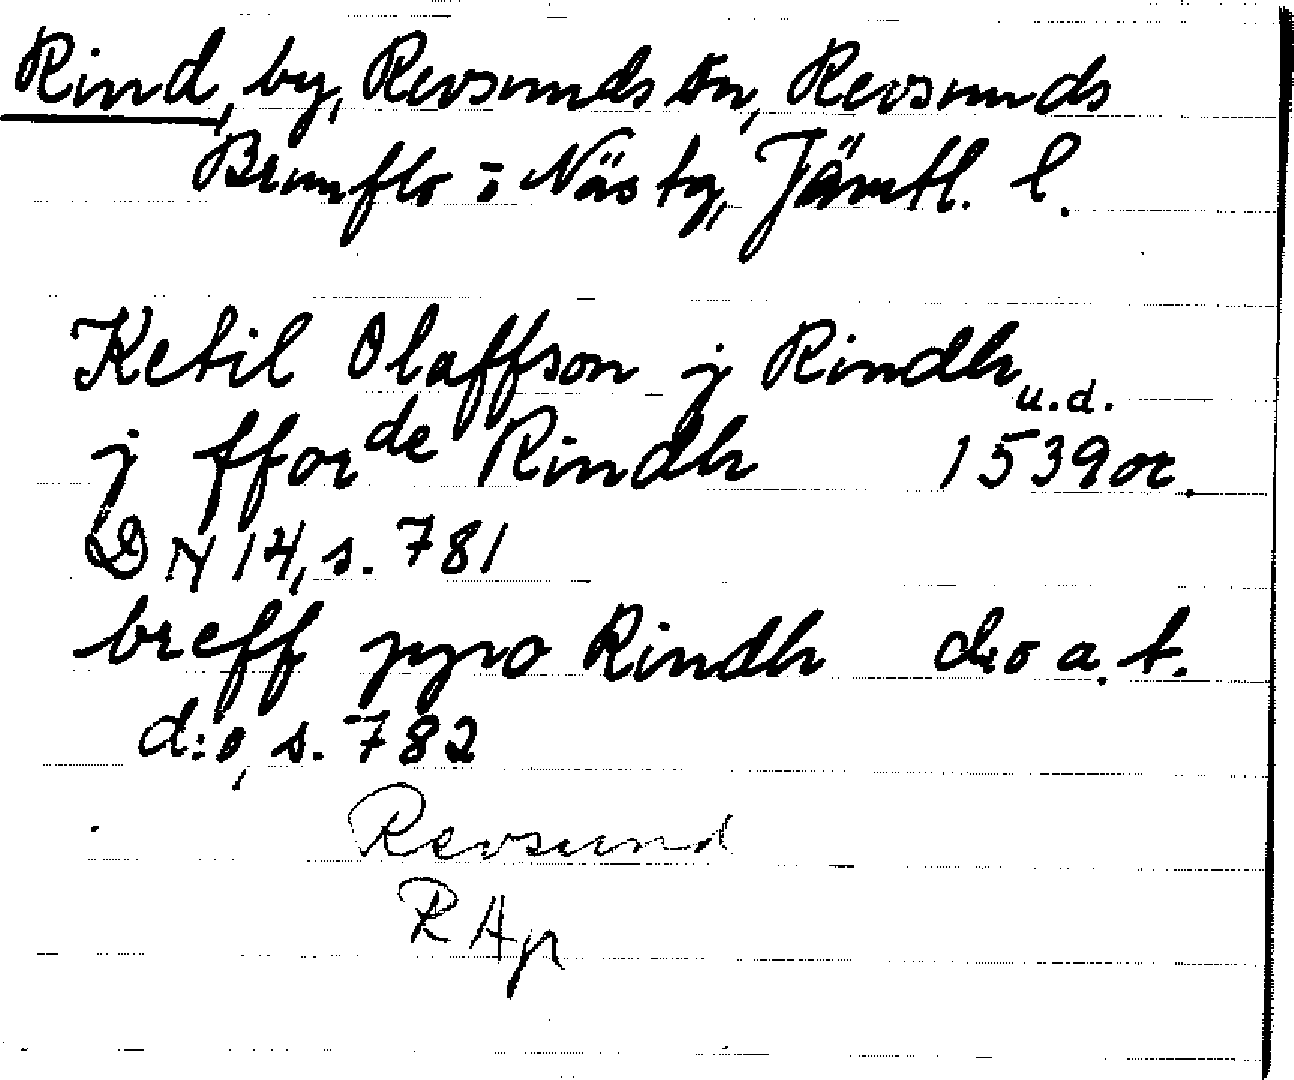 Rind, by, Revsunds sn, Revsunds
Brunflo o Näs tg, Jämtl. l.
Ketil Olaffson j Rindh
u.d.
j ffor de Rindh 1539 or.
DN 14, s. 781
breff pyro Rindh d:o a.t.
d:o, s. 782
Revsund
R Ap